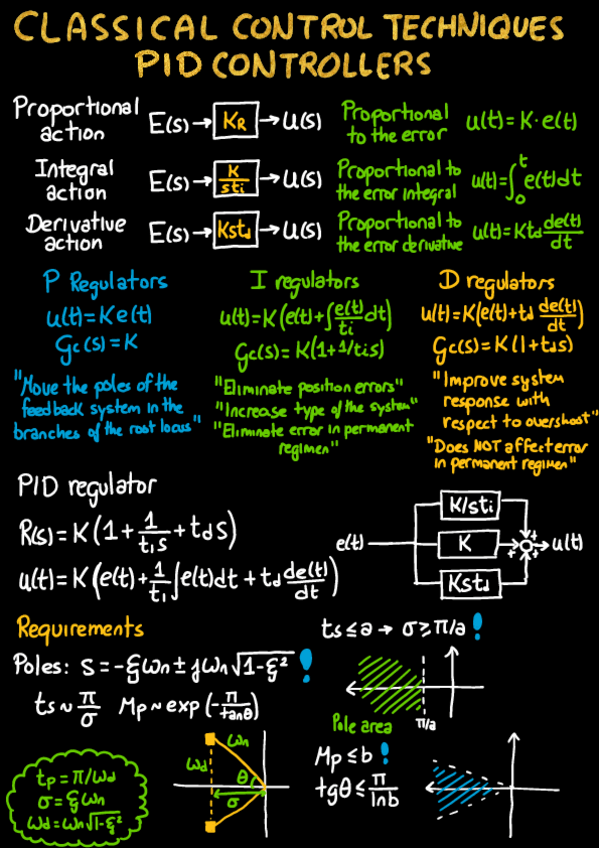 CLASSICAL CONTROL TECHNIQUES
PID CONTROLLERS
Proportional action E(s)→ K_R →U(s) Proportional to the error u(t)=K·e(t)
Integral action E(s)→ K/sti →U(s) Proportional to the error integral u(t)=∫₀ᵗ e(t)dt
Derivative action E(s)→ Kstd →U(s) Proportional to the error derivative u(t)=Ktd de(t)/dt
P Regulators
u(t)=Ke(t)
Gc(s)=K
"Move the poles of the
feedback system in the
branches of the root locus"
I regulators
u(t)=K(e(t)+∫e(t)/ti dt)
Gc(s)=K(1+1/tis)
"Eliminate position errors"
"Increase type of the system"
"Eliminate error in permanent
regimen"
D regulators
u(t)=K(e(t)+td de(t)/dt)
Gc(s)=K(1+tds)
"Improve system
response with
respect to overshoot"
"Does NOT affect error
in permanent regimen"
PID regulator
R(s)=K(1+1/t₁s+tds)
u(t)=K(e(t)+1/t₁∫e(t)dt+td de(t)/dt)
K/sti
e(t) K + + + u(t)
Kstd
Requirements
Poles: S=-ξωn±jωn√1-ξ² !
ts~π/σ Mp~exp(-π/tanθ)
ts≤a→σ≥π/a !
Pole area π/a
tp=π/ωd
σ=ξωn
ωd=ωn√1-ξ²
ωn
ωd θ
σ
Mp≤b !
tgθ≤π/lnb